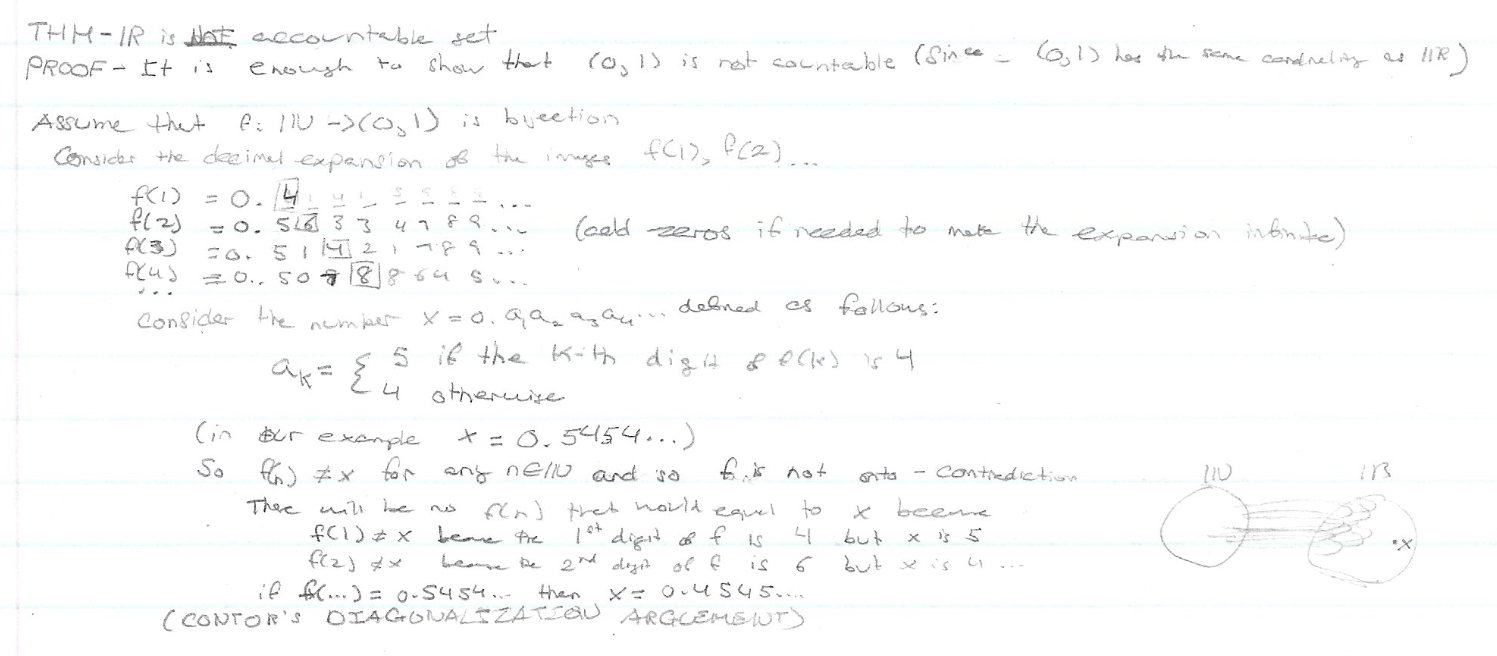 THM - IR is NOT accountable set
PROOF - It is enough to show that (0,1) is not countable (Since - (0,1) has the same cardinality as IR)
Assume that f: IN -> (0,1) is bijection
Consider the decimal expansion of the images f(1), f(2)...
f(1) = 0. 4
f(2) = 0. 5 6 3 3 4 7 8 9...
(add zeros if needed to make the expansion infinite)
f(3) = 0. 5 1 4 2 1 7 8 9...
f(4) = 0.. 5 0 9 8 8 6 4 5...
...
Consider the number x = 0. a₁ a₂ a₃ a₄... defined as follows:
aₖ = { 5 if the k-th digit of f(k) is 4
4 otherwise
(in our example x = 0.5454...)
So f(n) ≠ x for any n ∈ IN and so f is not onto - contradiction
There will be no f(n) that would equal to x because
f(1) ≠ x because the 1st digit of f is 4 but x is 5
f(2) ≠ x because the 2nd digit of f is 6 but x is 4 ...
if f(...) = 0.5454... then x = 0.4545....
(CONTOR'S DIAGONALIZATION ARGUEMENT)
IN IR
•x